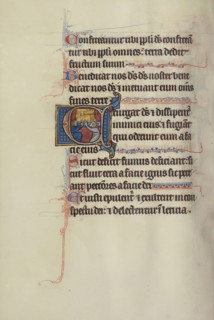 Confiteantur tibi ppłi ds confiteant
tur tibi ppłi omnes: terra dedit
fructum suum
Benedicat nos ds ds noster bene
dicat nos ds et metuant eum oms
fines terre
Exurgat ds et dissipent
inimici eius et fugiant
qui oderunt eum a fa
cie eius
Sicut deficit fumus deficiant si
cut fluit cera a facie ignis sic per
eant pctores a facie dei
Et iusti epulent et exultent in con
spectu dei et delectentur in leticia